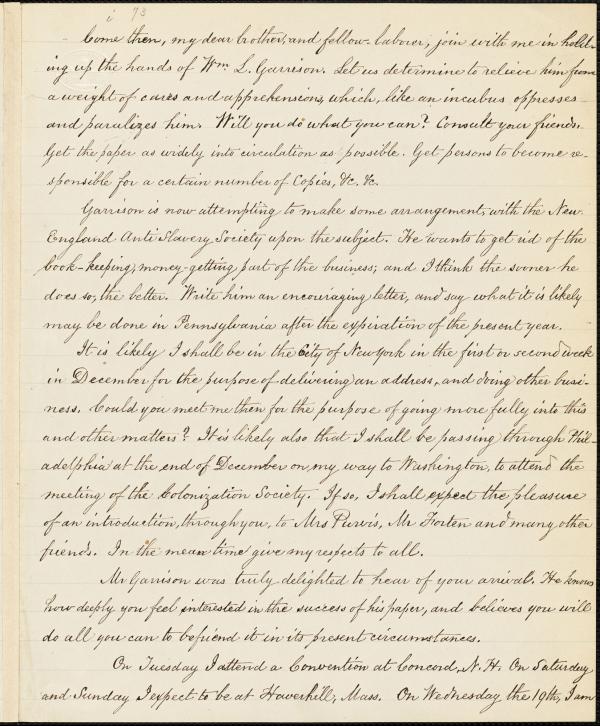 73
Come then, my dear brother, and fellow-laborer, join with me in hold-
ing up the hands of Wm L. Garrison. Let us determine to relieve him from
a weight of cares and apprehensions, which, like an incubus oppresses
and paralizes him. Will you do what you can? Consult your friends.
Get the paper as widely into circulation as possible. Get persons to become re-
sponsible for a certain number of Copies, &c. &c.
Garrison is now attempting to make some arrangement, with the New
England Anti Slavery Society upon the subject. He wants to get rid of the
book-keeping, money-getting part of the business; and I think the sooner he
does so, the better. Write him an encouraging letter, and say what it is likely
may be done in Pennsylvania after the expiration of the present year.
It is likely I shall be in the City of New York in the first or second week
in December for the purpose of delivering an address, and doing other busi-
ness. Could you meet me then for the purpose of going more fully into this
and other matters? It is likely also that I shall be passing through Phil-
adelphia at the end of December on my way to Washington, to attend the
meeting of the Colonization Society. If so, I shall expect the pleasure
of an introduction, through you, to Mrs Purvis, Mr Forten and many other
friends. In the mean time give my respects to all.
Mr Garrison was truly delighted to hear of your arrival. He knows
how deeply you feel interested in the success of his paper, and believes you will
do all you can to befriend it in its present circumstances.
On Tuesday I attend a Convention at Concord, N.H. On Saturday
and Sunday I expect to be at Haverhill, Mass. On Wednesday the 19th, I am